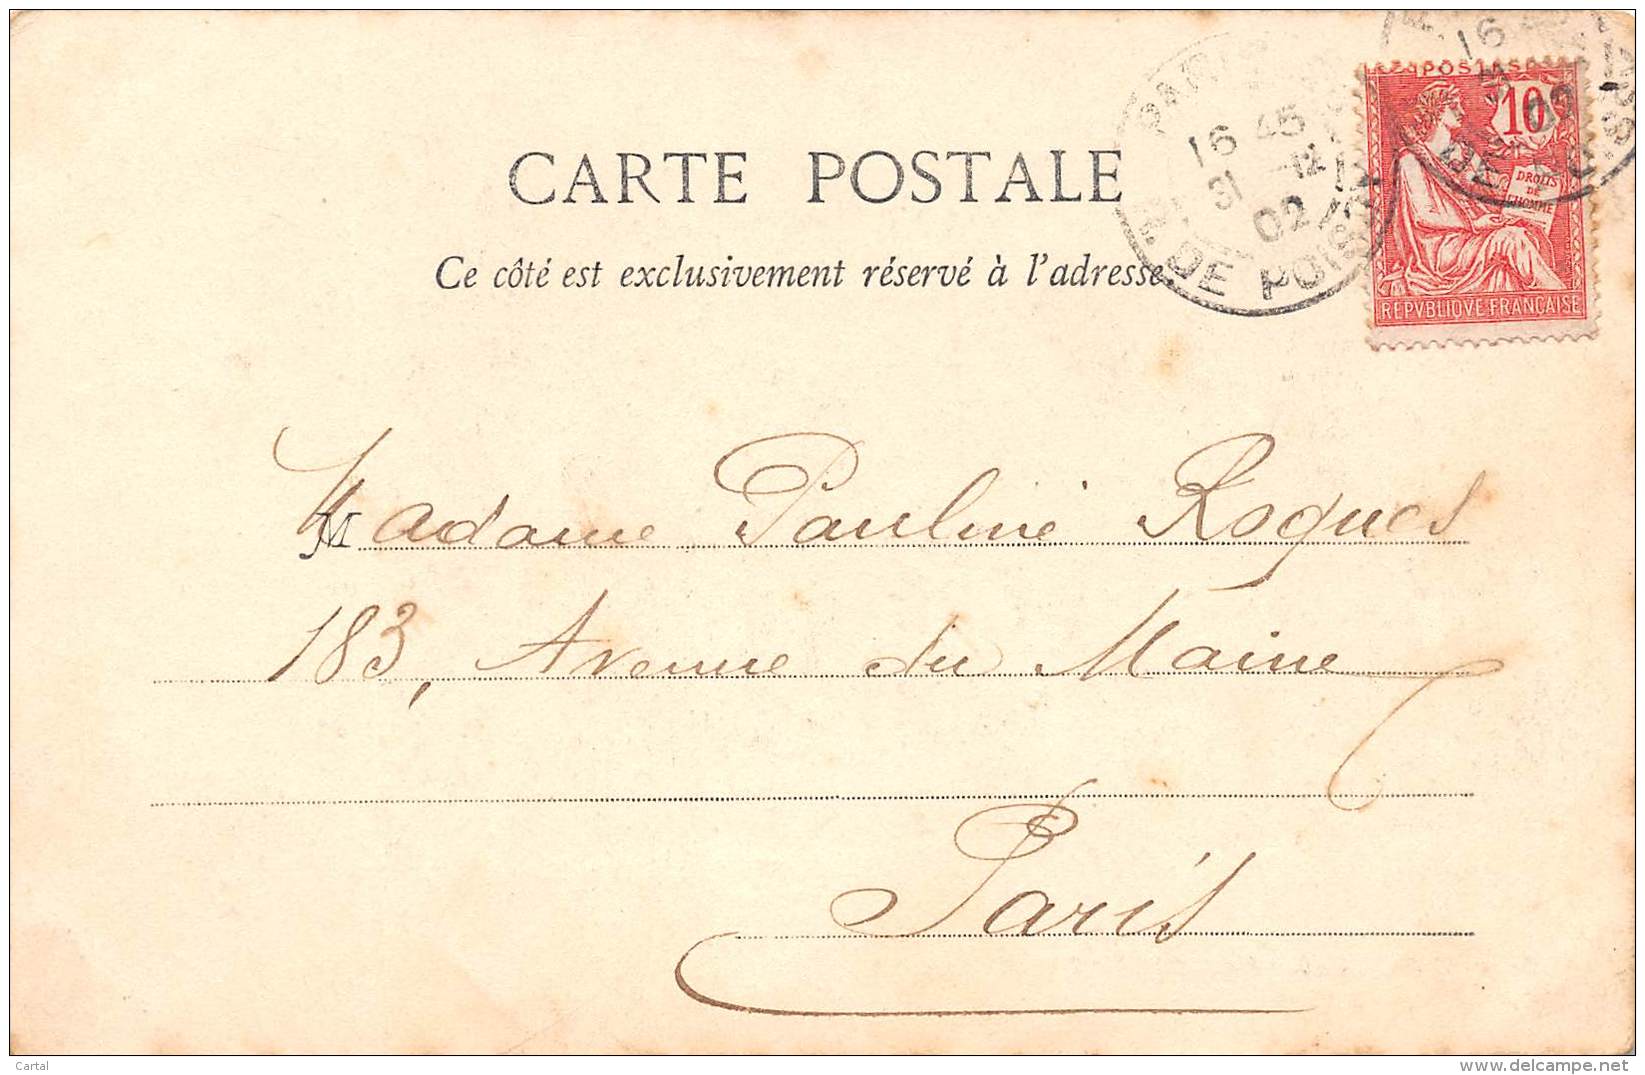 CARTE POSTALE
Ce côté est exclusivement réservé à l'adresse.
POSTES
10
DROITS
DE
L'HOMME
REPVBLIQVE FRANÇAISE
PARIS
16 45
31 -12
02
DE POISSY
16
02
Madame Pauline Roques
183, Avenue du Maine
Paris
Cartal
www.delcampe.net